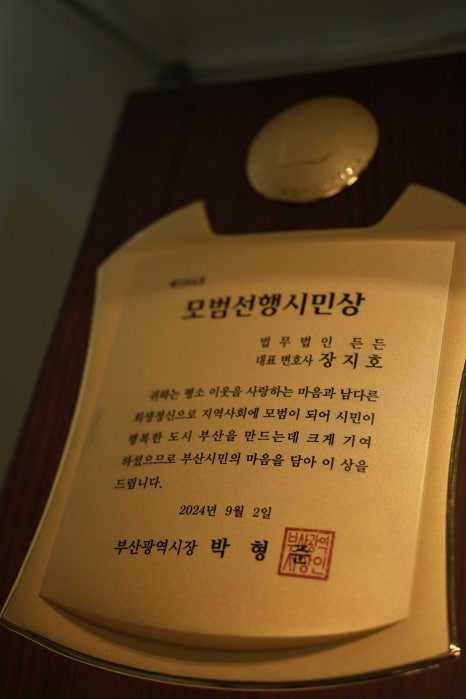 모범선행시민상
법무법인 든든
대표 변호사 장지호
귀하는 평소 이웃을 사랑하는 마음과 남다른
희생정신으로 지역사회에 모범이 되어 시민이
행복한 도시 부산을 만드는데 크게 기여
하셨으므로 부산시민의 마음을 담아 이 상을
드립니다.
2024년 9월 2일
부산광역시장 박 형 준
부산광역
시장인